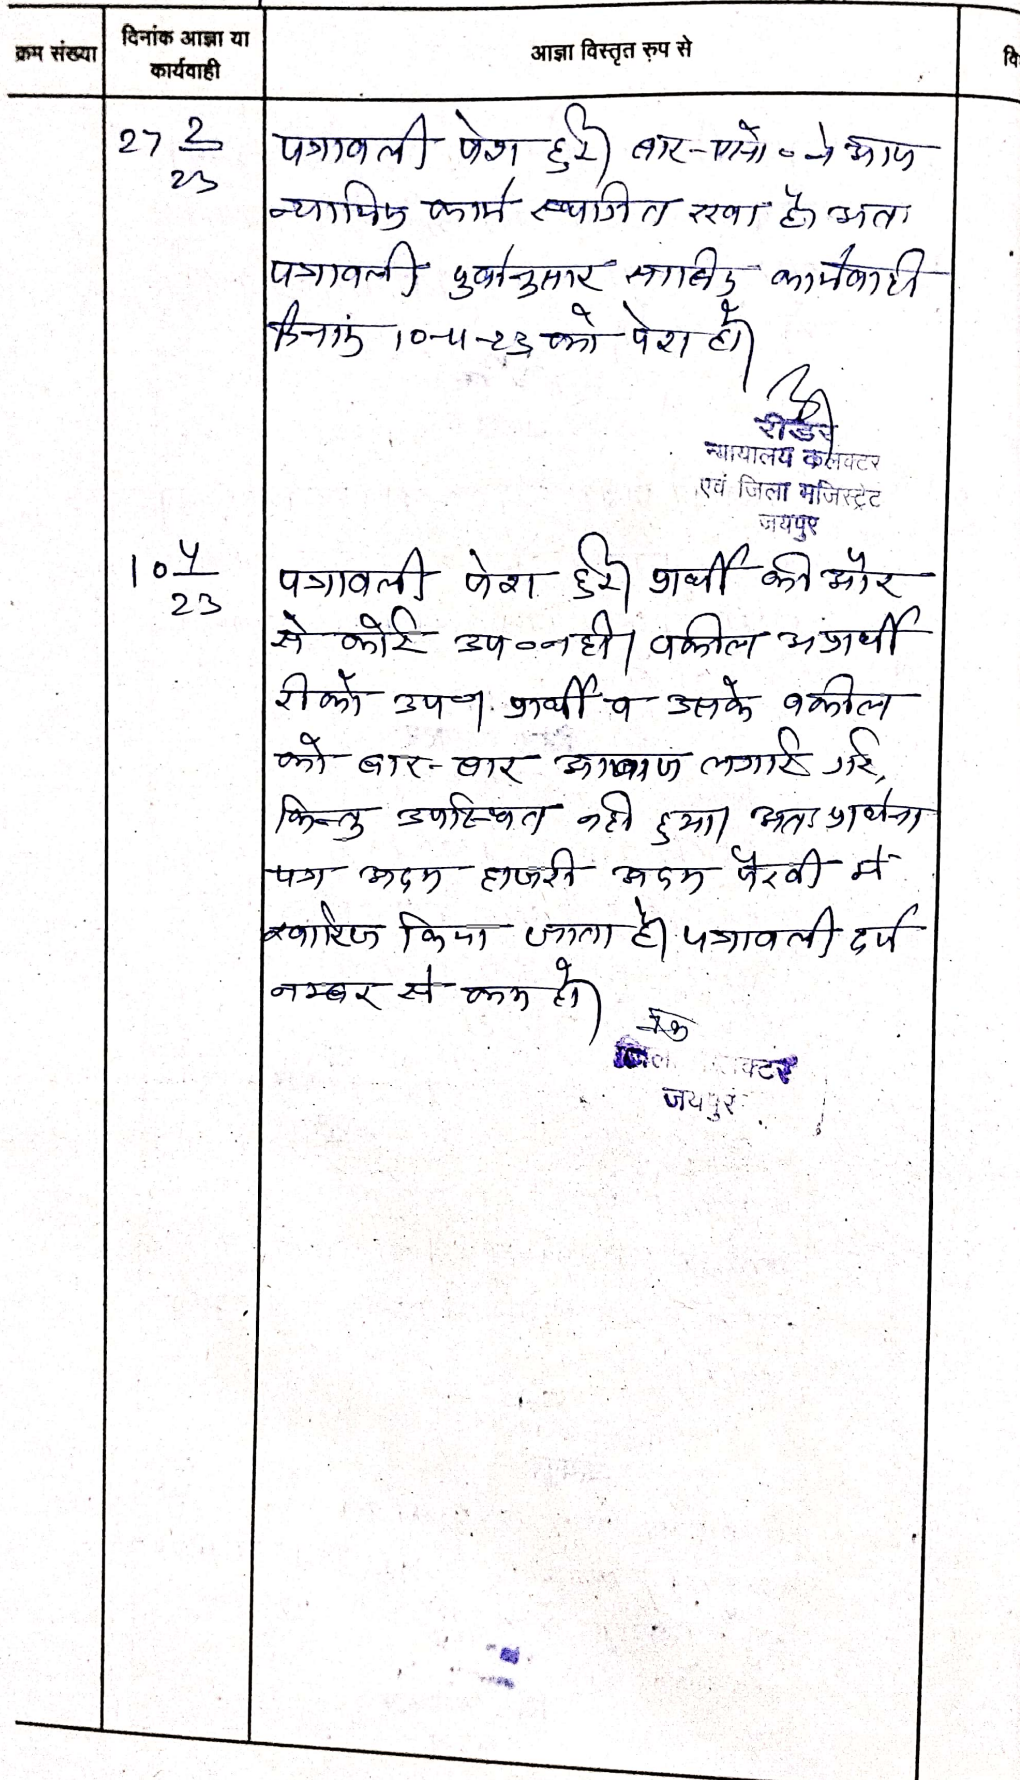 क्रम संख्या
दिनांक आज्ञा या
कार्यवाही
आज्ञा विस्तृत रुप से
वि
27 2/23
पत्रावली पेश हुई। बार-एसो० ने आज
न्यायिक कार्य स्थगित रखा है। अतः
पत्रावली पूर्वानुसार कार्यवाही
दिनांक 10-4-23 को पेश हो।
रीडर
न्यायालय कलक्टर
एवं जिला मजिस्ट्रेट
जयपुर
10 4/23
पत्रावली पेश हुई। प्रार्थी की और
से कोई उप० नही। वकील अप्रार्थी
रीको उप०। प्रार्थी व उसके वकील
को बार-बार आवाज लगाई गई,
किन्तु उपस्थित नही हुआ। अतः प्रार्थना
पत्र अदम हाजरी अदम पैरवी में
खारिज किया जाता है। पत्रावली दर्ज
नम्बर से कम हो।
जिला कलक्टर
जयपुर